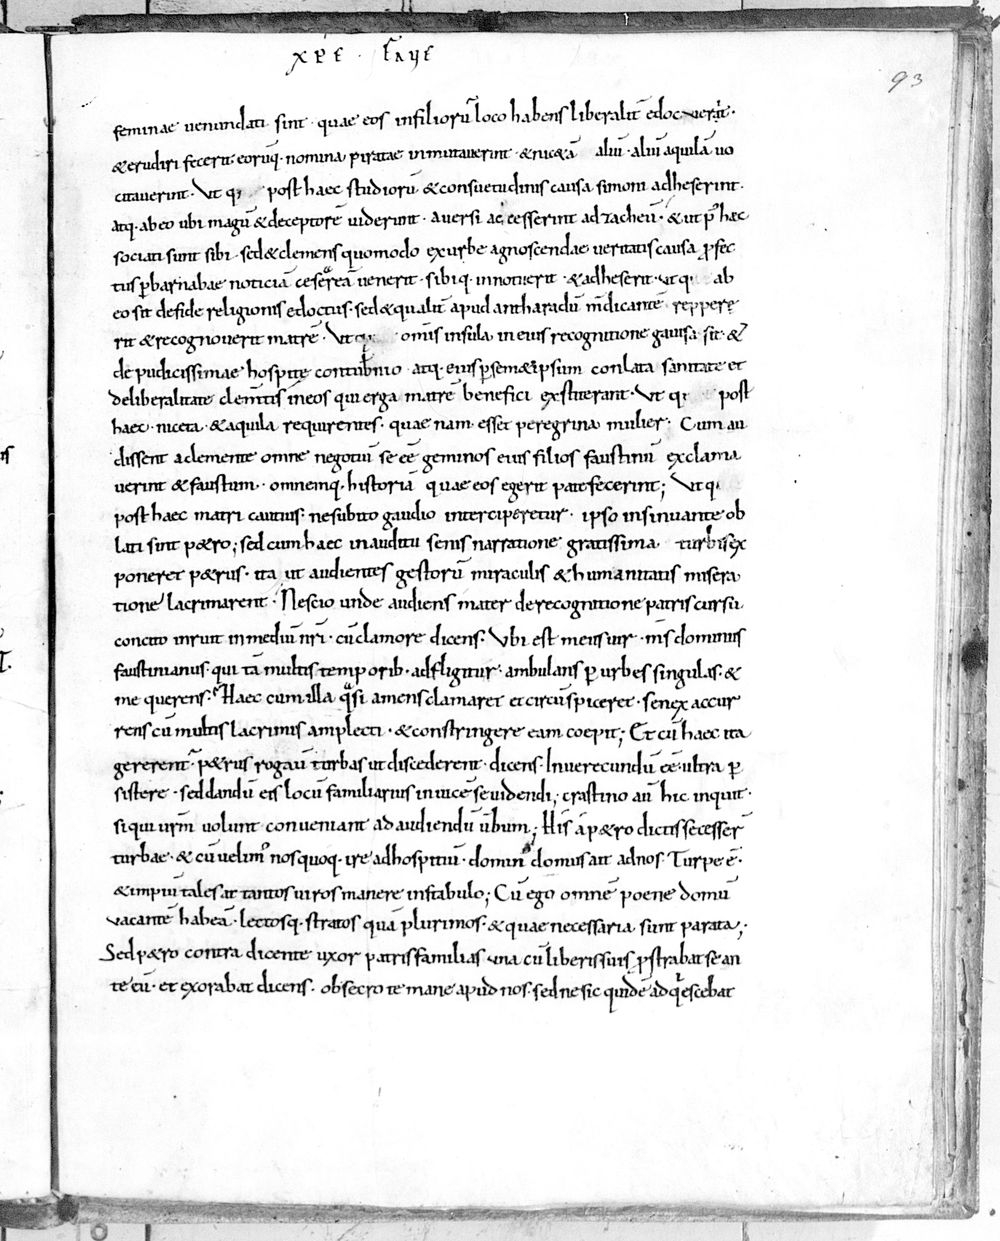 xp̄e · faue
93
feminae uenundati sint · quae eos infiliorū loco habens liberalit̄ edocuerit ·
& erudiri fecerit · eorūq · nomina piratae inmutauerint · & nic&ā aliū · aliū aquilā uo
citauerint · Ut q; post haec studiorū & consuetudinis causa simoni adheserint ·
atq · ab eo ubi magū & deceptorē uiderunt · auersi accesserint ad zacheū · & ut p̄ haec
sociati sunt sibi · sed & clemens quomodo ex urbe agnoscendae ueritatis causa profec
tus p barnabae noticiā cesareā uenerit · sibiq · innotuerit · & adheserit · ut q; ab
eo sit de fide religionis edoctus · sed & qualit̄ apud antharadū mēdicantē reppere
rit & recognouerit matrē · Ut omīs insula in eius recognitione gauisa sit · &
de pudicissimae hospite contub̄nio · atq · eius p sem&ipsum conlata sanitate et
deliberalitate clem̄tis in eos qui erga matrē benefici exstiterant · Ut q; post
haec · niceta · & aquila requirentes · quae nam esset peregrina mulier · Cum au
dissent a clemente omne negotiū se eē geminos eius filios faustinū exclama
uerint & faustum · omnemq · historiā quae eos egerit patefecerint ; Ut q;
post haec matri cautius · ne subito gaudio interciperetur · ipso insinuante ob
lati sint p&ro ; sed cum haec in auditu senis narratione gratissima turbis ex
poneret p&rus · ita ut audientes gestorū miraculis & humanitatis misera
tione lacrimarent · Nescio unde audiens mater de recognitione patris cursū
concito inruit in mediū nr̄i · cū clamore dicens · Ubi est meus uir · m̄s dominus
faustinianus · qui tā multis temporib · adfligitur · ambulans p urbes singulas · &
me querens · Haec cum illa q̄si amens clamaret et circūspiceret · senex accur
rens cū multis lacrimis amplecti · & constringere eam coepit ; Et cū haec ita
gererent̄ · p&rus rogaū turbas ut discederent · dicens · Inuerecundū eē · ultra p
sistere · sed dandū eis locū familiarius inuicē se uidendi ; crastino aū hic inquit ·
si qui ur̄m uolunt conueniant ad audiendū ūbum ; His a p&ro dictis secesser̄
turbae · & cū uelim' nos quoq · ire ad hospitiū · domin' domus ait ad nos · Turpe ē ·
& impiū tales ac tantos uiros manere in stabulo ; Cū ego omnē poene domū
uacantē habeā · lectosq · stratos quā plurimos · & quae necessaria sunt parata ;
Sed p&ro contra dicente uxor patris familias una cū liberis suis prostrabat se an
te eū · et exorabat dicens · obsecro te mane apud nos · sed ne sic quidē adq̄escebat